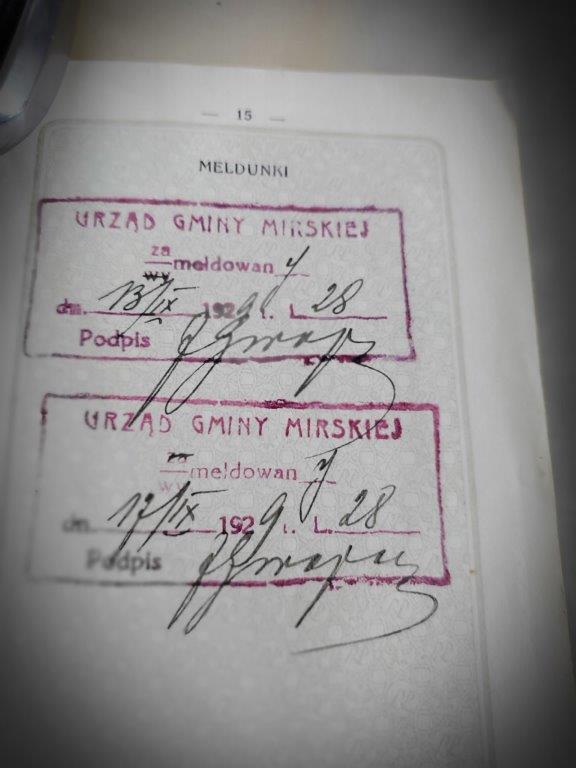 — 15 —
MELDUNKI
URZĄD GMINY MIRSKIEJ
za
meldowany
wy
dn. 13/IX 1929 r. L. 28
Podpis
URZĄD GMINY MIRSKIEJ
za
meldowany
wy
dn. 17/IX 1929 r. L. 28
Podpis